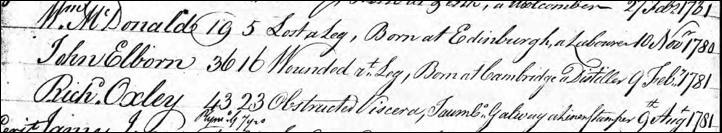 a 27 Feb. 1781
Wm. McDonald 19 5 Lost a Leg, Born at Edinburgh, a Labourer 10 Novr. 1780
John Elborn 36 16 Wounded rt. Leg, Born at Cambridge a Distiller 9 Febr. 1781
Richd. Oxley 43 23 Obstructed Viscera, Galway a Linen Stamper 9th Augt. 1781
James